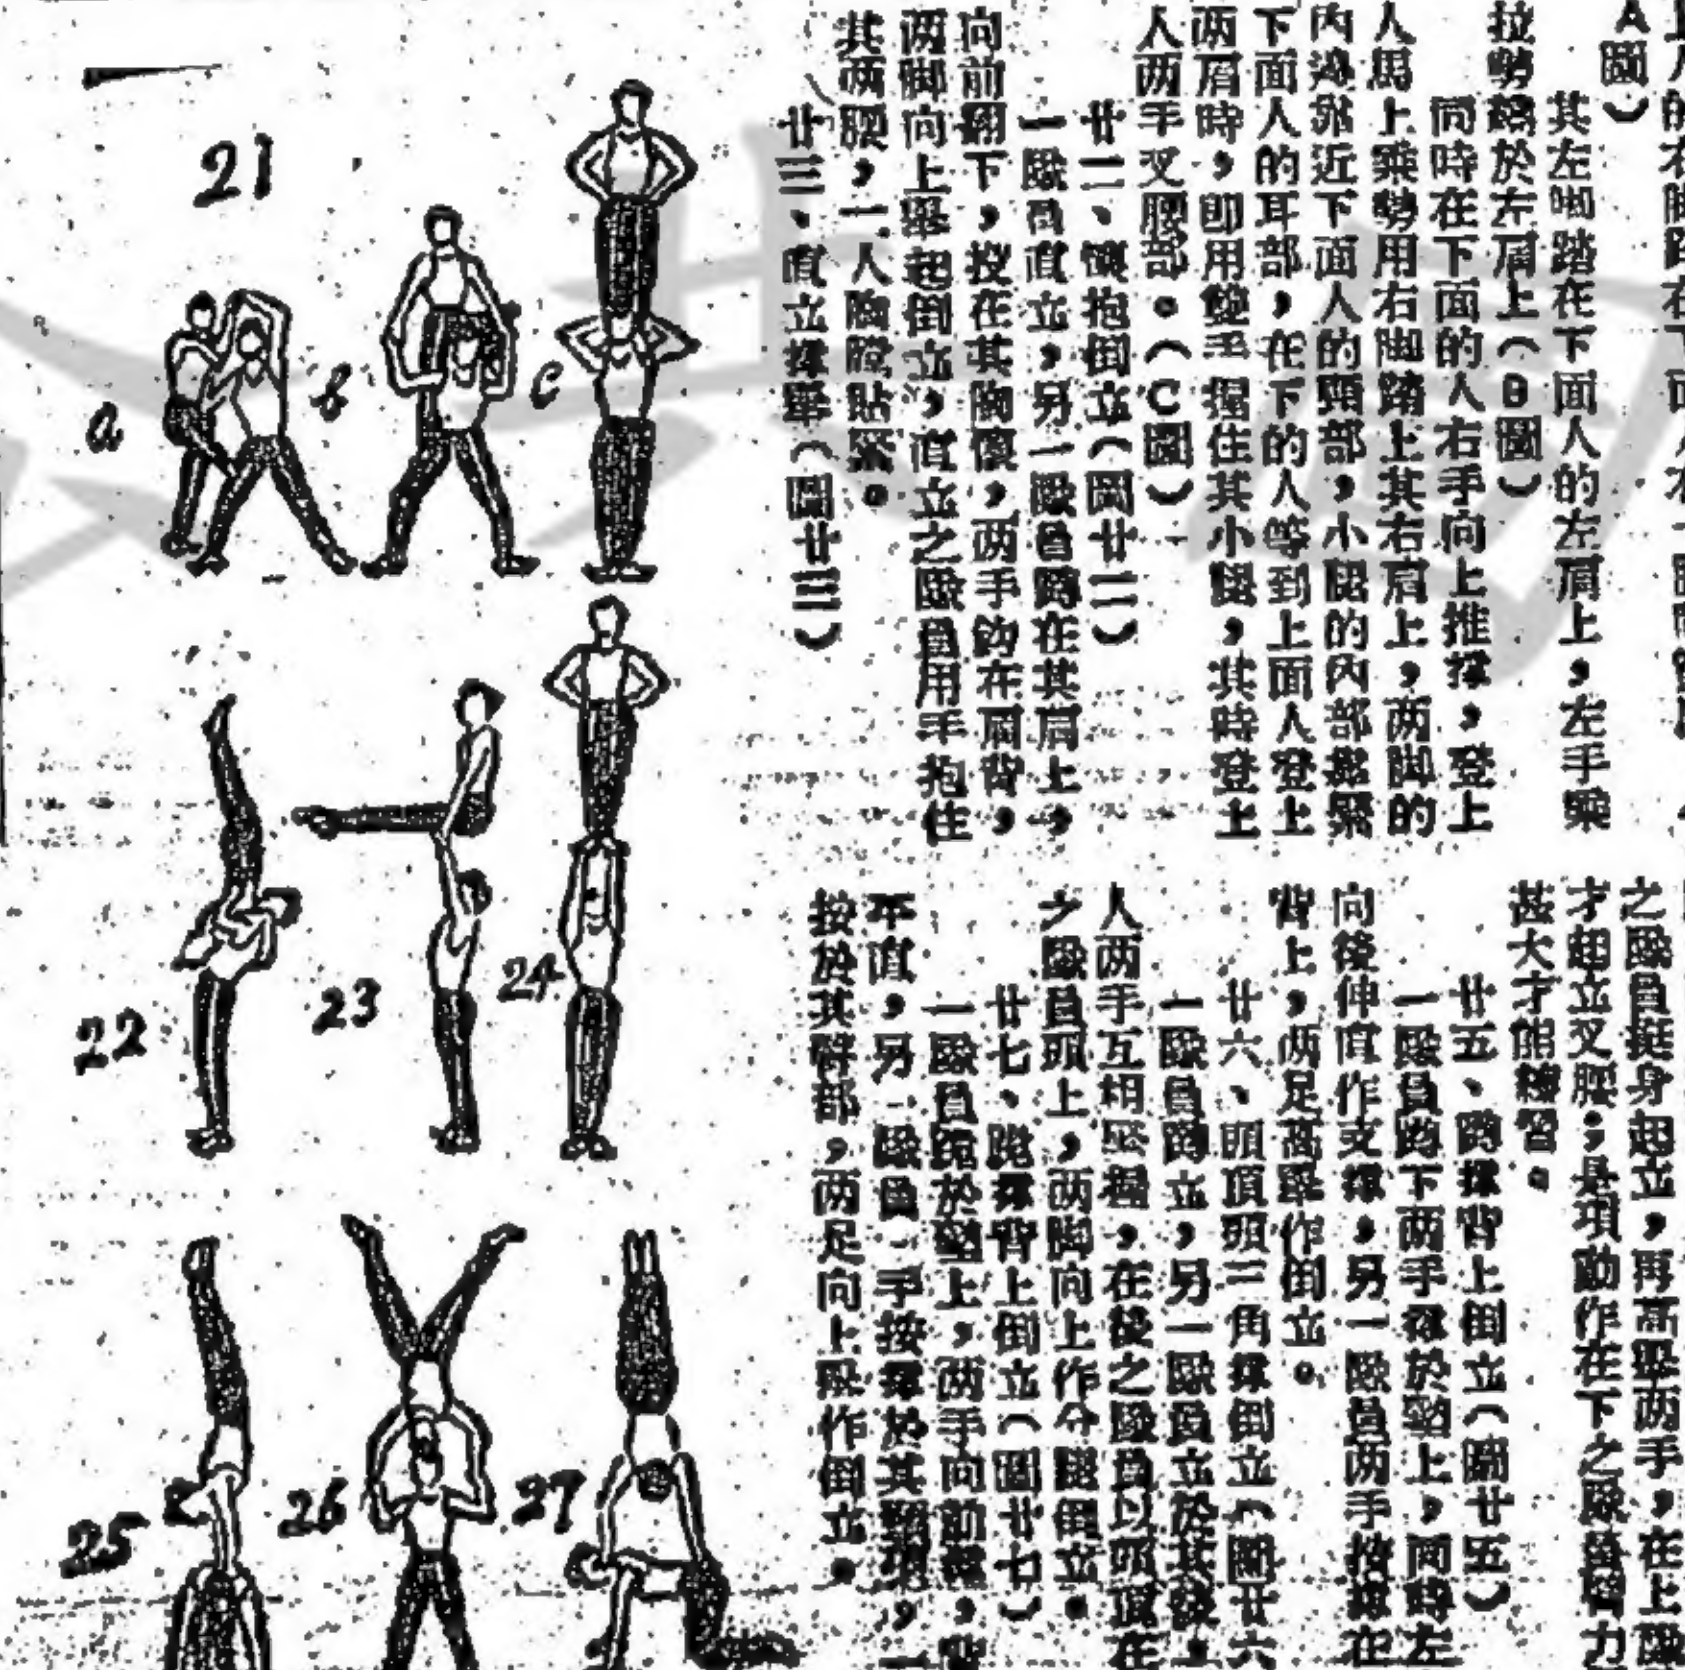 A圖）
其左脚踏在下面人的左肩上，左手乘
拉勢繞於左肩上（B圖）
同時在下面的人右手向上推撑，登上
人馬上乘勢用右脚踏上其右肩上，两脚的
內邊靠近下面人的頸部，小腿的內部緊
下面人的耳部，在下的人等到上面人登上
两肩時，卽用雙手握住其小腿，其時登上
人两手叉腰部。（C圖）
廿二、懷抱倒立（圖廿二）
一隊員直立，另一隊員蹲在其肩上，
向前翻下，投在其胸懷，两手鈎在肩背，
两脚向上舉起倒立，直立之隊員用手抱住
其两腰，一人胸膛貼緊。
廿三、直立撑舉（圖廿三）
之隊員挺身起立，再高舉两手，在上
才起立叉腰；是項動作在下之隊員力
甚大才能練習。
廿五、蹲撑背上倒立（圖廿五）
一隊員蹲下两手撑於墊上，同時左
向後伸直作支撑，另一隊員两手按撑在
背上，两足高舉作倒立。
廿六、頭頂頭三角撑倒立（圖廿六
一隊員蹲立，另一隊員立於其後，
人两手互相緊握，在後之隊員以頭頂在
之隊員頭上，两脚向上作分腿倒立。
廿七、跪撑背上倒立（圖廿七）
一隊員跪於墊上，两手向前撑，
平直，另一隊員一手按撑於其頸項，一
按於其臀部，两足向上舉作倒立。
21
a
b
c
22
23
24
25
26
27